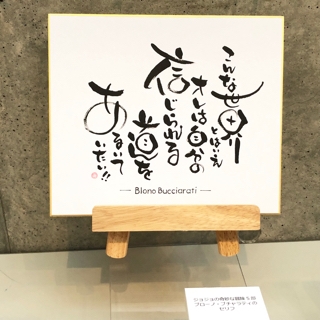 こんな世界
とはいえ
オレは自分の
信じられる
道を
あるいて
いたい!!
Blono Bucciarati
ジョジョの奇妙な冒険 5部
ブローノ・ブチャラティの
セリフ